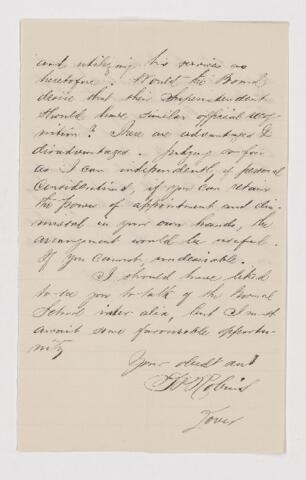 and utilizing his services as
heretofore. Would the Board
desire that their Superintendent
should have similar official recog-
nition? There are advantages &
disadvantages. Judging so far
as I can independently of personal
considerations, if you can retain
the power of appointment and dis-
missal in your own hands, the
arrangement would be useful.
If you cannot, undesirable.
I should have liked
to see you to talk of the Normal
School inter alia, but I must
await some favourable opportu-
nity
Your obedt servt
Over